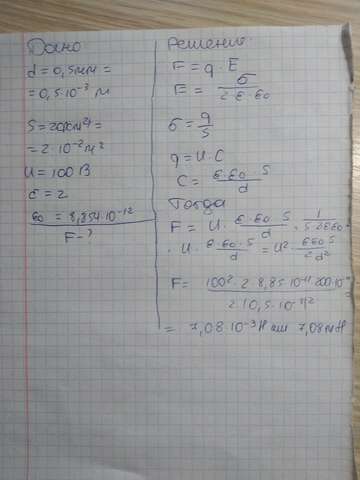 Дано
d = 0,5мм =
= 0,5·10⁻³ м
S = 200см² =
= 2·10⁻²м²
U = 100 В
ε = 2
ε₀ = 8,854·10⁻¹²
F - ?
Решение:
F = q · E
E = σ / 2·ε·ε₀
σ = q / S
q = U·C
C = ε·ε₀·S / d
Тогда
F = U · ε·ε₀·S / d · 1 / S·2εε₀ ·
· U · ε·ε₀·S / d = U² · εε₀S / 2d²
F = 100²·2·8,85·10⁻¹²·200·10⁻⁴ / 2(0,5·10⁻³)²
= 7,08·10⁻³Н или 7,08мН